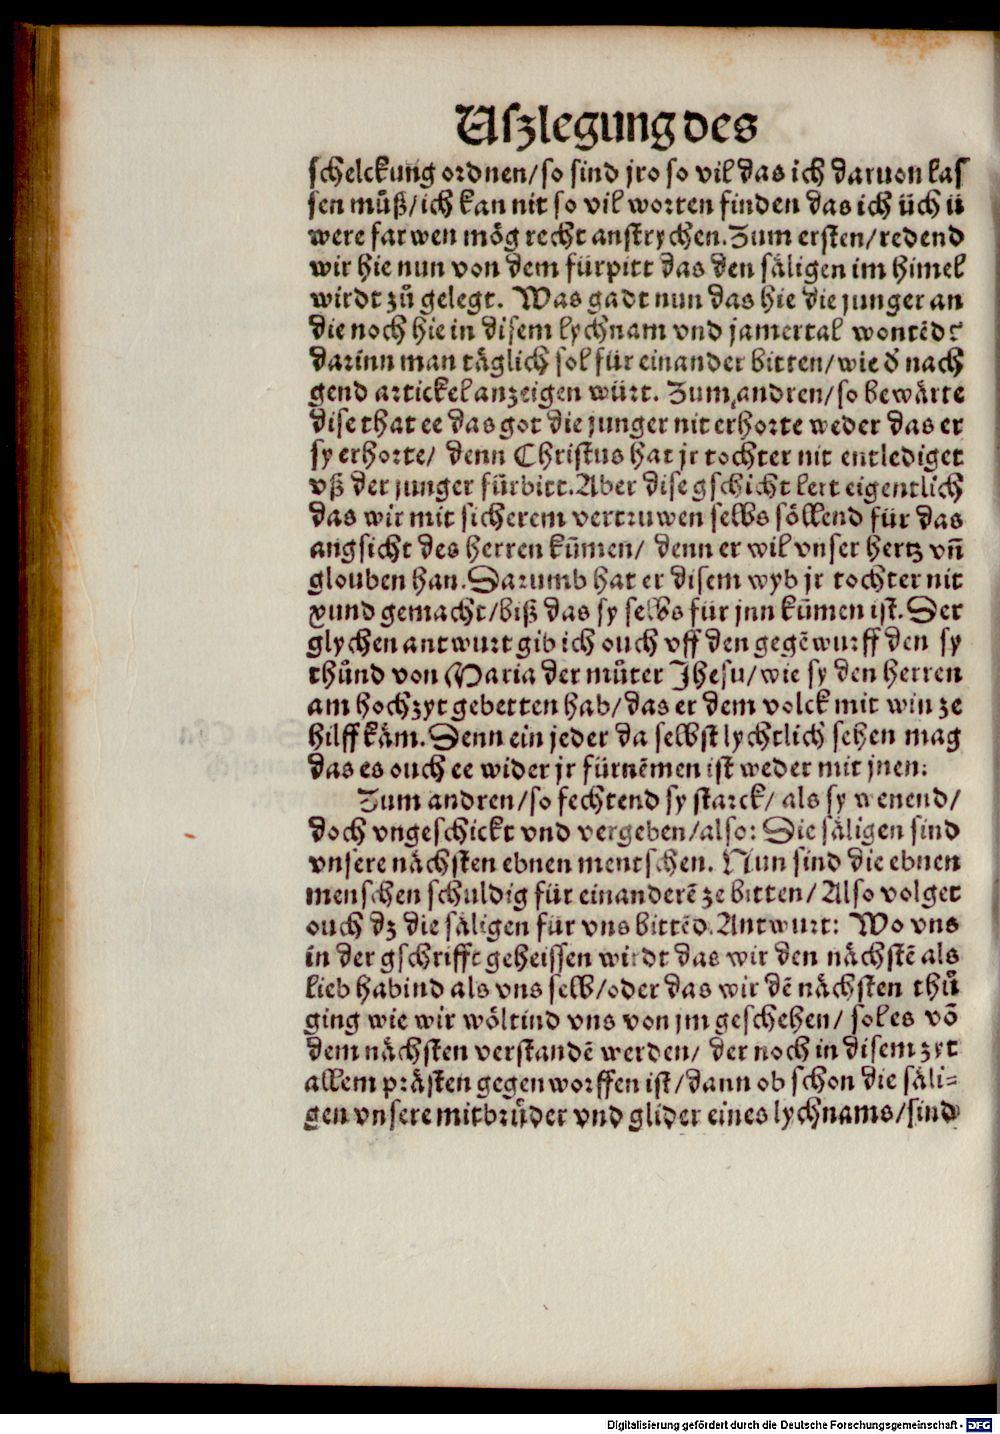 Uſzlegung des
ſchelckung ordnen/ ſo ſind jro ſo vil das ich daruon laſ
ſen můß/ ich kan nit ſo vil worten finden das ich üch ü
were farwen mög recht anſtrychen. Zum erſten/ redend
wir hie nun von dem fürpitt das den ſäligen im himel
wirdt zů gelegt. Was gadt nun das hie die junger an
die noch hie in diſem lychnam vnd jamertal wontēd?
darinn man täglich ſol für einander bitten/ wie d̕ nach
gend artickel anzeigen würt. Zum andren/ ſo bewärte
diſe that ee das got die junger nit erhorte weder das er
ſy erhorte/ denn Chriſtus hat jr tochter nit entlediget
vß der junger fürbitt. Aber diſe gſchicht lert eigentlich
das wir mit ſicherem vertruwen ſelbs ſöllend für das
angſicht des herren kūmen/ denn er wil vnſer hertz vñ
glouben han. Darumb hat er diſem wyb jr tochter nit
gſund gemacht/ biß das ſy ſelbs für jnn kūmen iſt. Der
glychen antwurt gib ich ouch vff den gegēwurff den ſy
thůnd von Maria der můter Jheſu/ wie ſy den herren
am hochzyt gebetten hab/ das er dem volck mit win ze
hilff käm. Denn ein jeder da ſelbſt lychtlich ſehen mag
das es ouch ee wider jr fürnēmen iſt weder mit jnen:
Zum andren/ ſo fechtend ſy ſtarck/ als ſy wenend/
doch vngeſchickt vnd vergeben/ alſo: Die ſäligen ſind
vnſere nächſten ebnen mentſchen. Nun ſind die ebnen
menſchen ſchuldig für einanderē ze bitten/ Alſo volget
ouch dz die ſäligen für vns bittēd. Antwurt: Wo vns
in der gſchrifft geheiſſen wirdt das wir den nächſtē als
lieb habind als vns ſelb/ oder das wir dē nächſten thů
ging wie wir wöltind vns von jm geſchehen/ ſol es võ
dem nächſten verſtandē werden/ der noch in diſem zyt
allem präſten gegen worffen iſt/ dann ob ſchon die ſäli⸗
gen vnſere mitbrůder vnd glider eines lychnams/ ſind
Digitalisierung gefördert durch die Deutsche Forschungsgemeinschaft - DFG